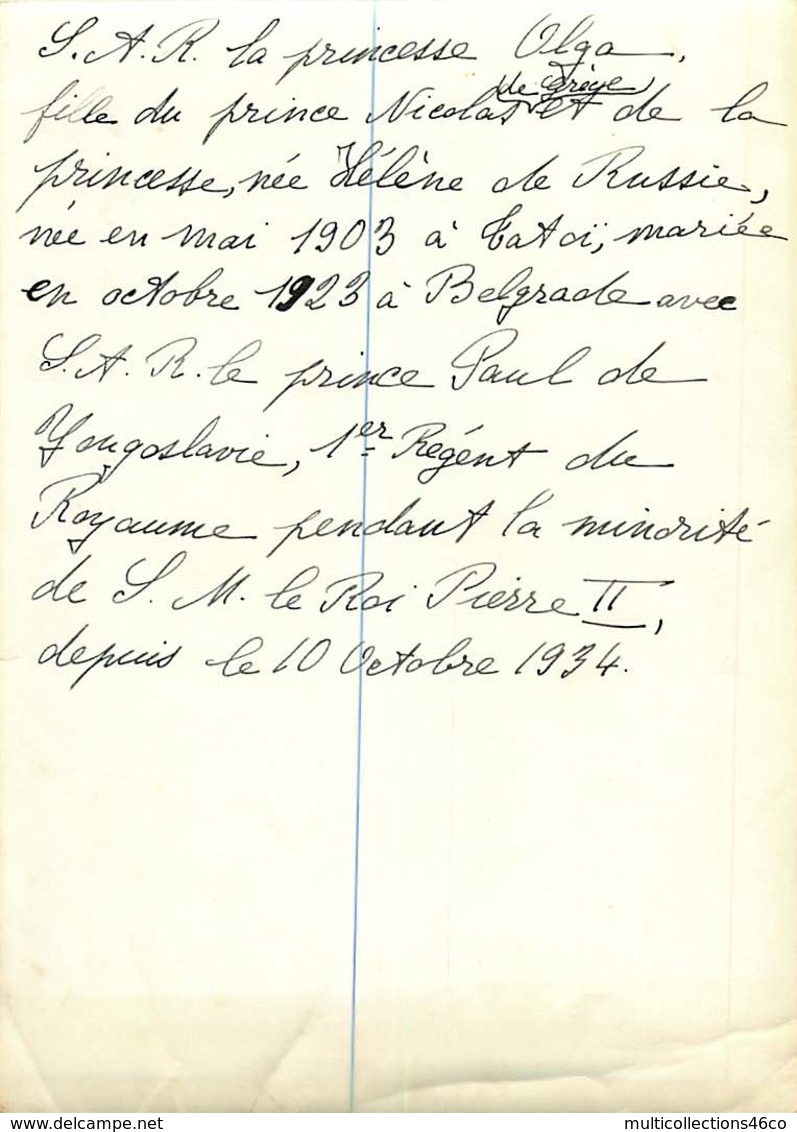 S. A. R. la princesse Olga,
de Grèce
fille du prince Nicolas et de la
princesse, née Hélène de Russie,
née en mai 1903 à Tatoï, mariée
en octobre 1923 à Belgrade avec
S. A. R. le prince Paul de
Yougoslavie, 1er Régent du
Royaume pendant la minorité
de S. M. le Roi Pierre II,
depuis le 10 Octobre 1934.
multicollections46co